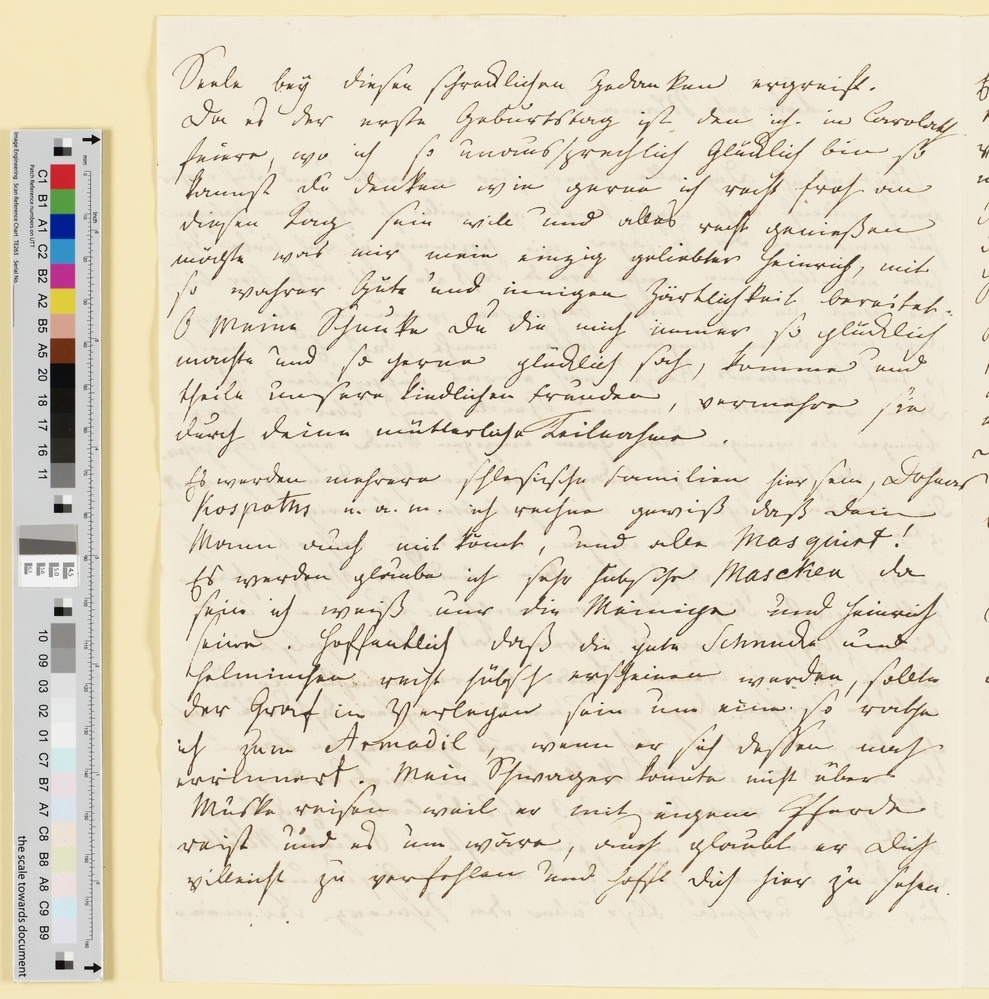 Seele bey diesen schrecklichen Gedanken ergreift.
Da es der erste Geburtstag ist den ich in Carolath
feiere, wo ich so unaussprechlich Glücklich bin so
kannst du denken wie gerne ich recht froh an
diesen Tag sein will und alles recht genießen
möchte was mir mein einzig geliebter Heinrich, mit
so wahrer Güte und innigen Zärtlichkeit bereitet.
O Meine Schnuke Du die mich immer so glücklich
machte und so gerne glücklich sah, komme und
theile unsere kindlichen Freuden, vermehre sie
durch deine mütterliche Teilnahme.
Es werden mehrere schlesische Familien hier sein, Dohnas
Kospoths u. a. m. ich rechne gewiß daß dein
Mann auch mit kömt, und alle Masquirt!
Es werden glaube ich sehr hübsche Mascken da
sein ich weiß nur die Meinige und Heinrich
seine. Hoffentlich daß die gute Schnucke und
Helminchen recht hübsch erscheinen werden, sollte
der Graf in Verlegen sein um eine so rathe
ich zum Armadil, wenn er sich dessen noch
errinnert. Mein Schwager konnte nicht über
Muska reisen weil er mit eigene Pferde
reist und es um wäre, auch glaubt er Dich
villeicht zu verfehlen und hofft dich hier zu sehen.
C1 B1 A1 C2 B2 A2 B5 A5 20 18 17 16 11
10 09 03 02 01 C7 B7 A7 C8 B8 A8 C9 B9
the scale towards document